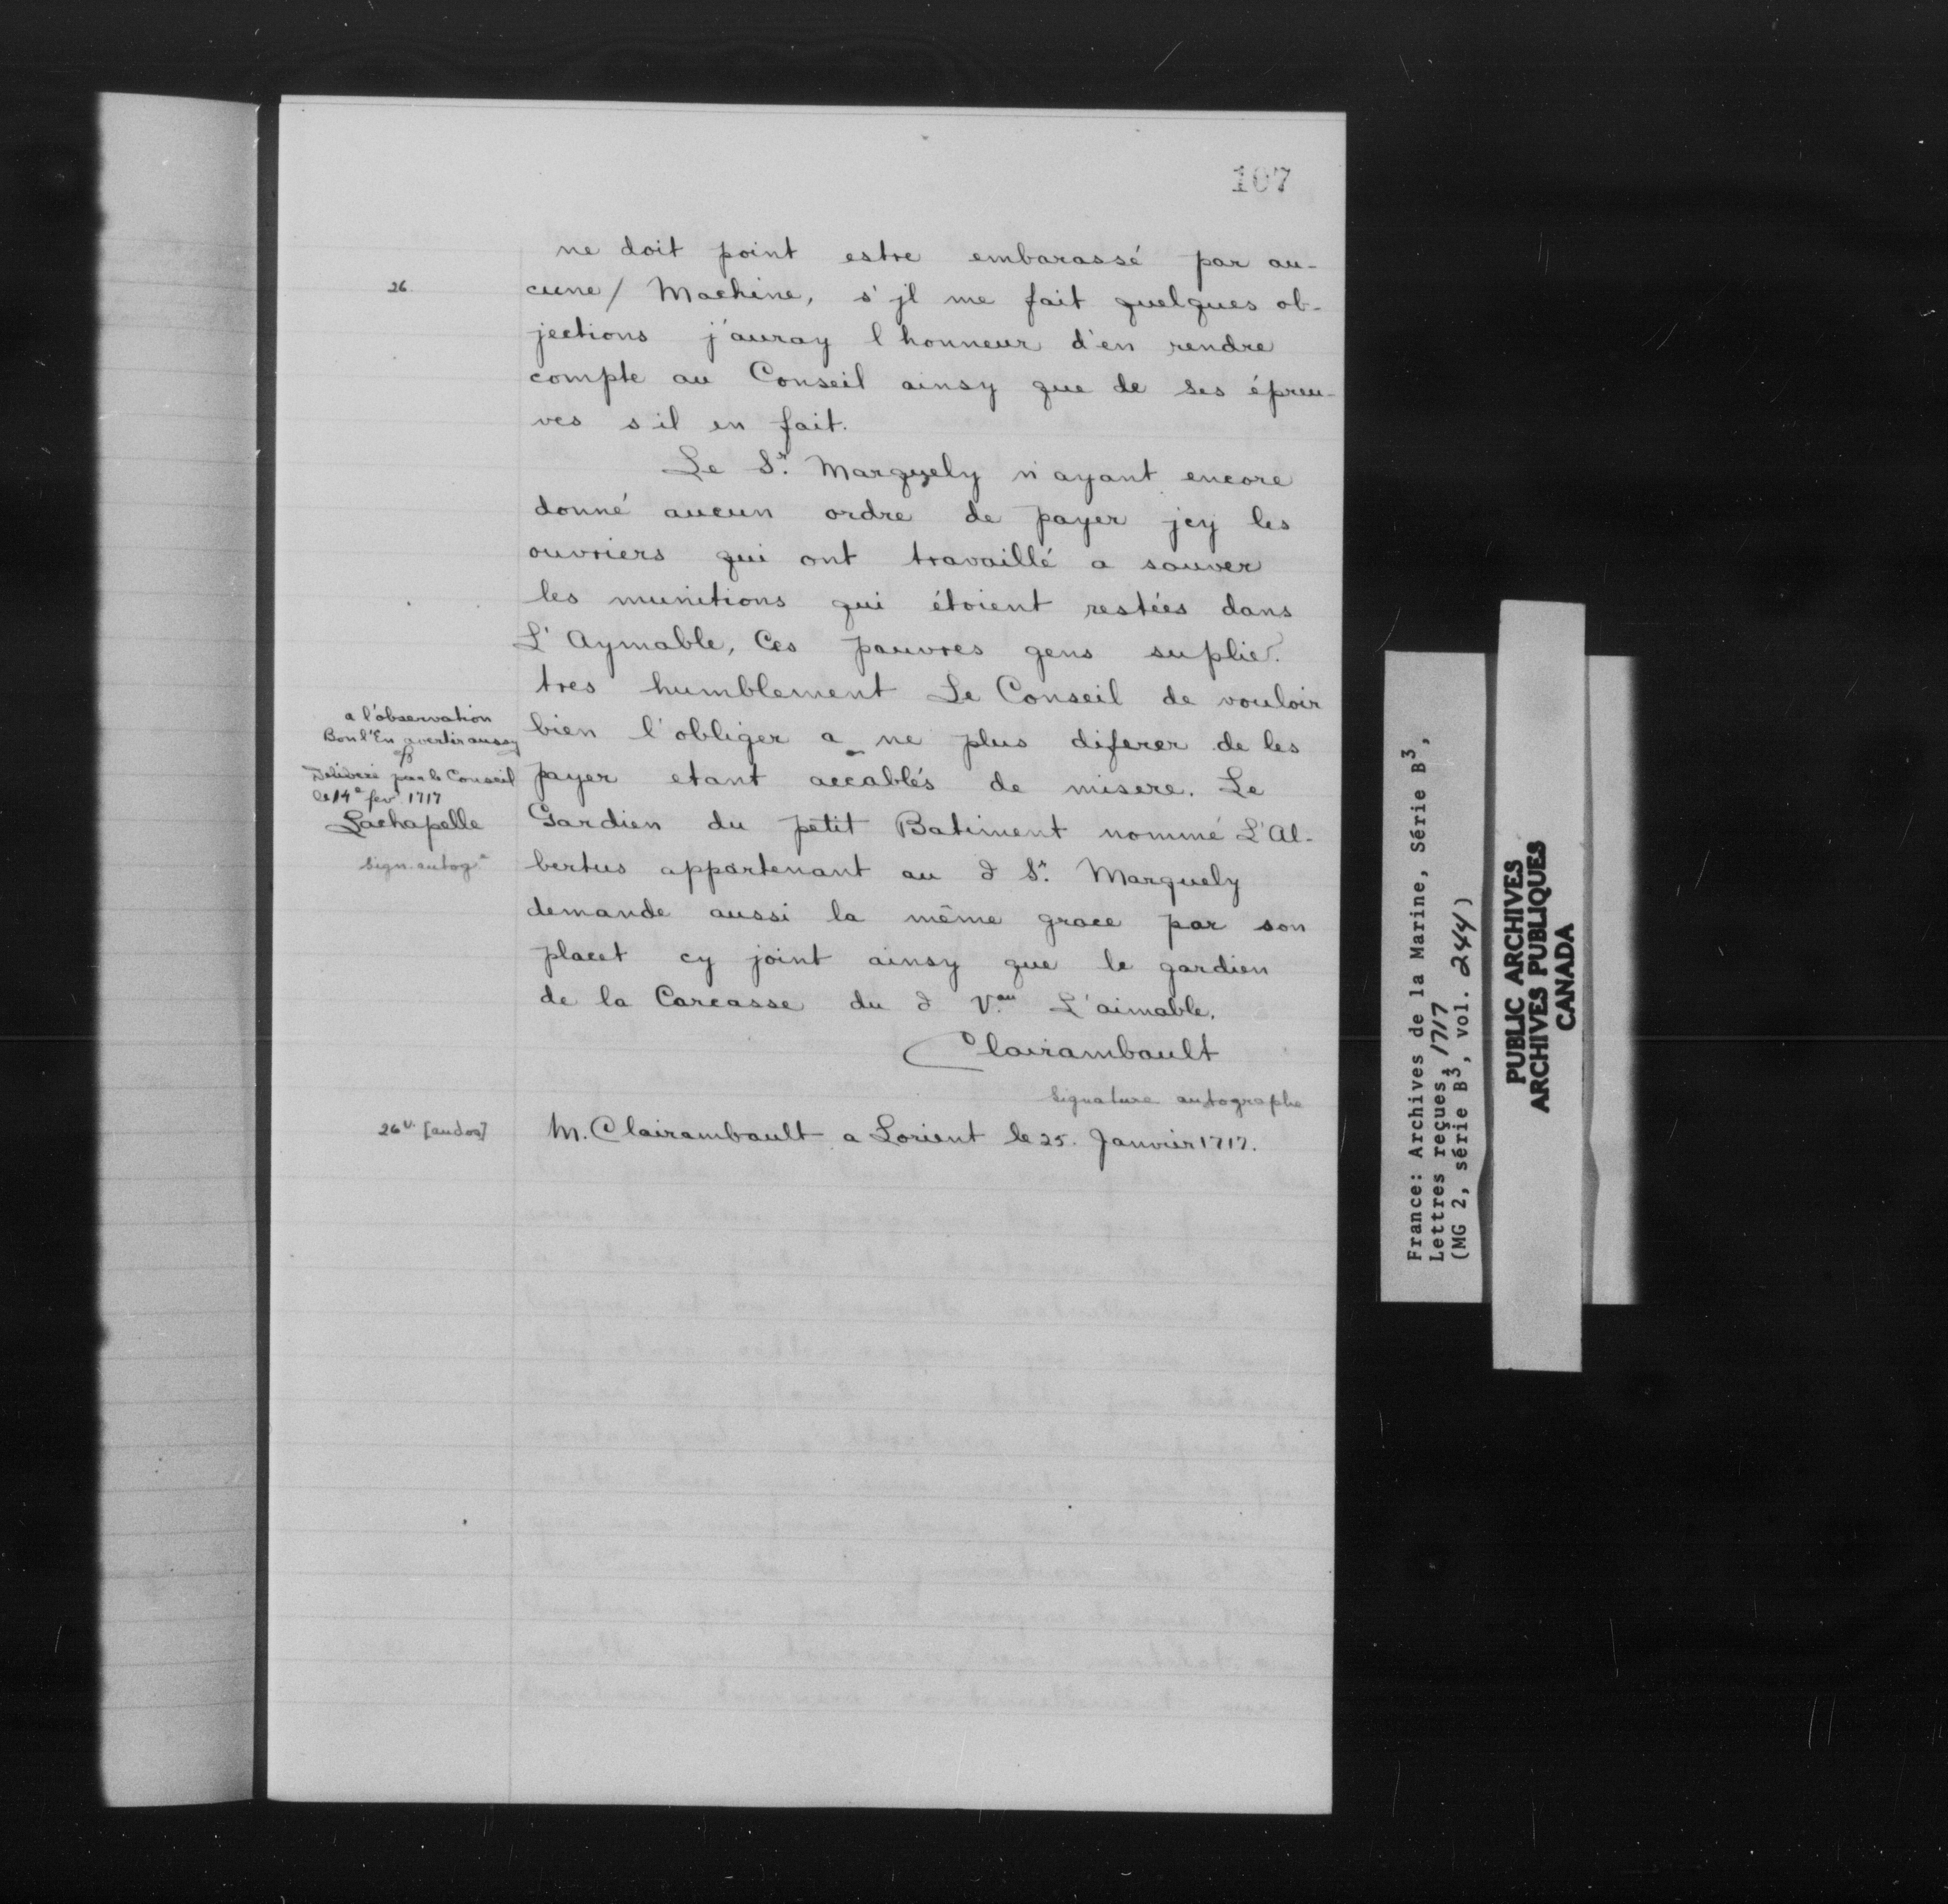 107
ne doit point estre embarassé par au-
26
cune / Machine, s'jl me fait quelques ob-
jections j'auray l honneur d'en rendre
compte au Conseil ainsy que de ses épreu-
ves s il en fait.
Le Sr. Marquely n'ayant encore
donné aucun ordre de payer jcy les
ouvriers qui ont travaillé a sauver
les munitions qui étoient restées dans
L' Aymable, Ces pauvres gens suplie.
tres humblement Le Conseil de vouloir
bien l'obliger a ne plus diferer de les
payer etant accablés de misere. Le
Gardien du petit Batiment nommé L'Al-
bertus appartenant au d Sr. Marquely
demande aussi la même grace par son
placet cy joint ainsy que le gardien
de la Carcasse du d V.au L'aimable.
a l'observation
Bon l'En avertir aussy
Délibéré par le Conseil
le 14e fev 1717
Lachapelle
sign. autog.
Clairambault
Signature autographe
26 v. [au dos]
M. Clairambault a Lorient le 25. Janvier 1717.
France: Archives de la Marine, Série B3,
Lettres reçues, 1717
(MG 2, série B3, vol. 244)
PUBLIC ARCHIVES
ARCHIVES PUBLIQUES
CANADA